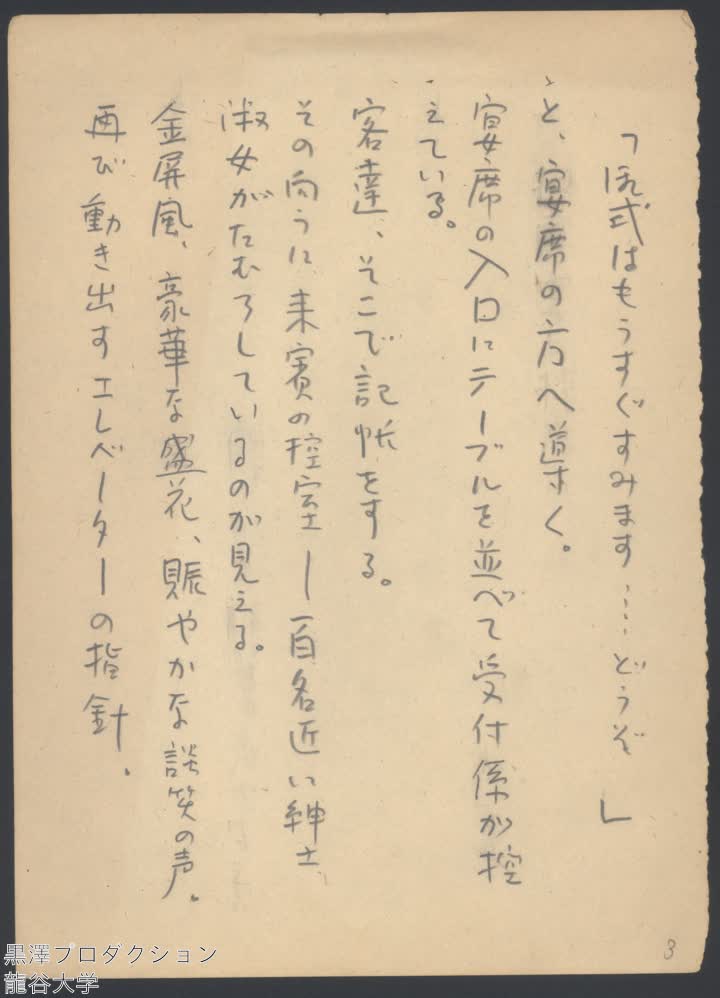 「お式はもうすぐすみます……どうぞ」
と、宴席の方へ導く。
宴席の入口にテーブルを並べて受付係が控
えている。
客達、そこで記帳をする。
その向うに来賓の控室――百名近い紳士
淑女がたむろしているのが見える。
金屏風、豪華な盛花、賑やかな談笑の声。
再び動き出すエレベーターの指針。
3
黒澤プロダクション
龍谷大学